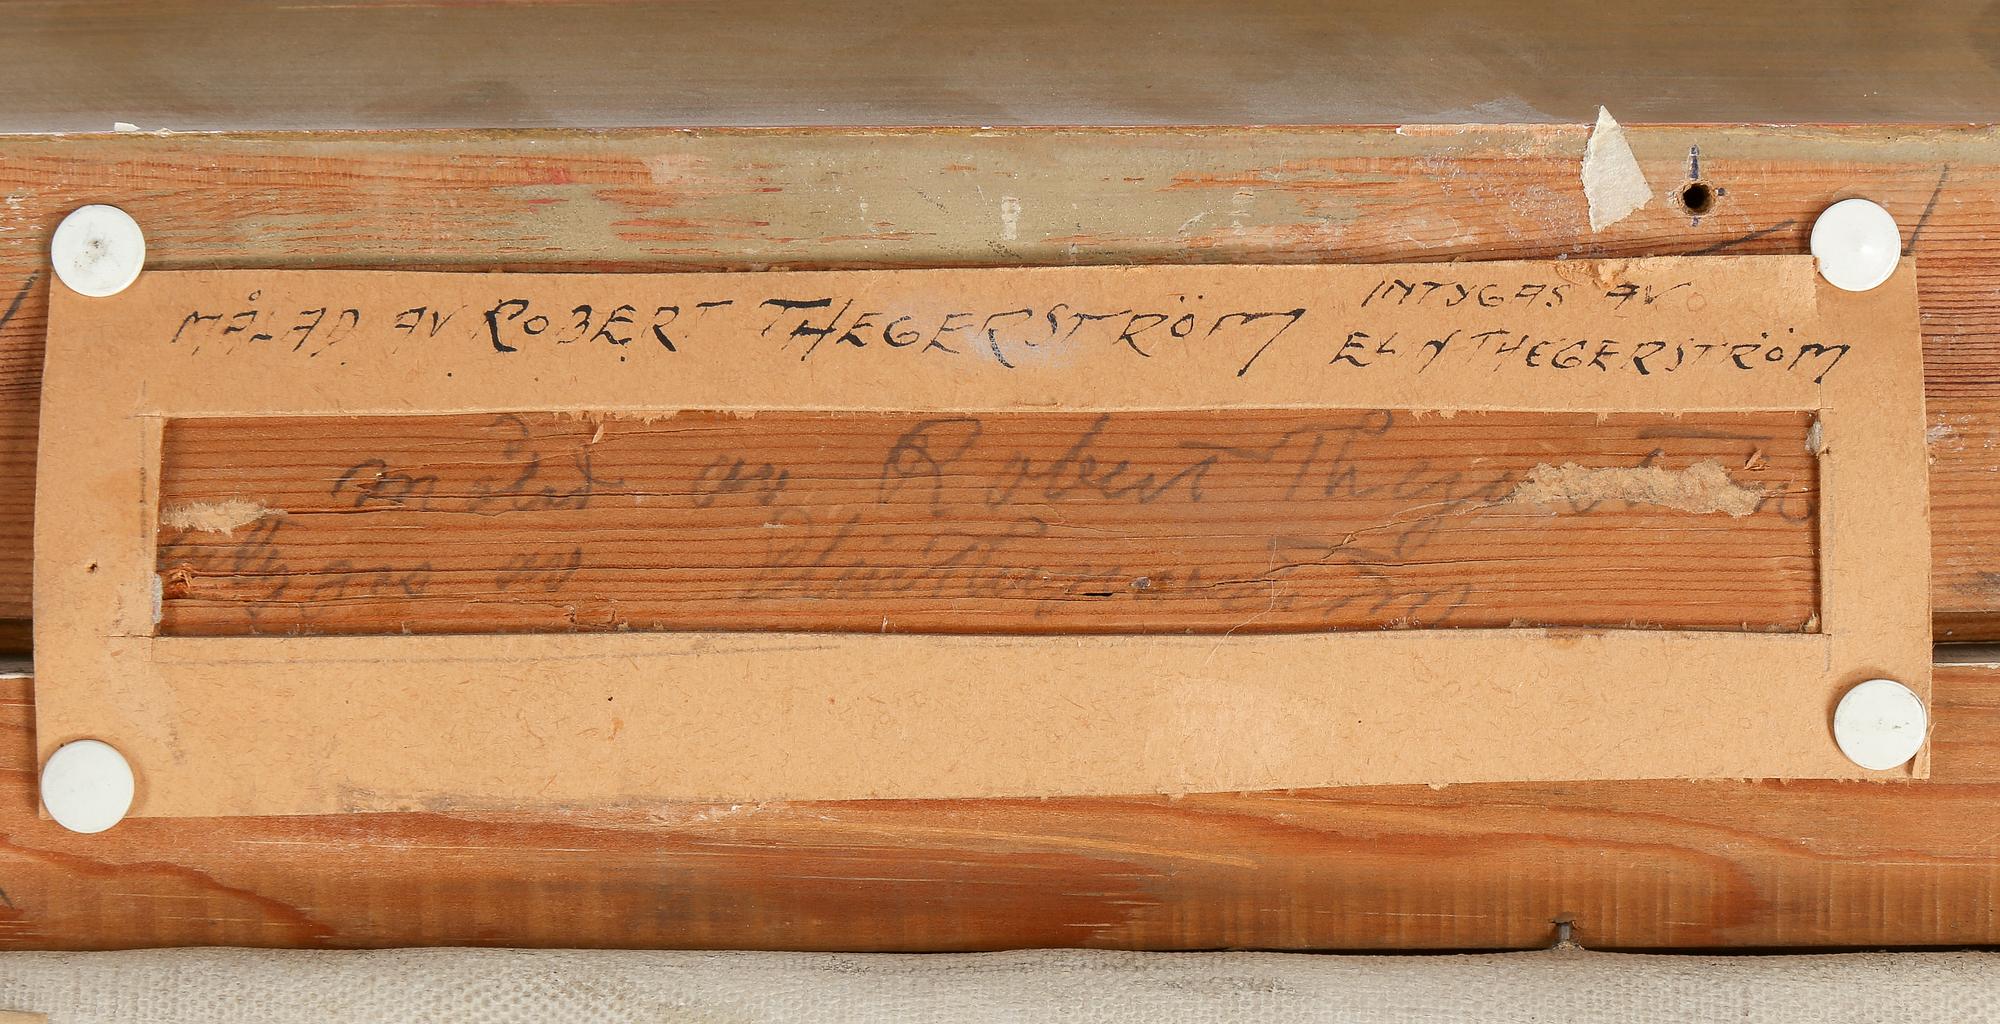 MÅLAD AV ROBERT THEGERSTRÖM
INTYGAS AV
ELIN THEGERSTRÖM
Målad av Robert Thegerström
Intygas av Elin Thegerström